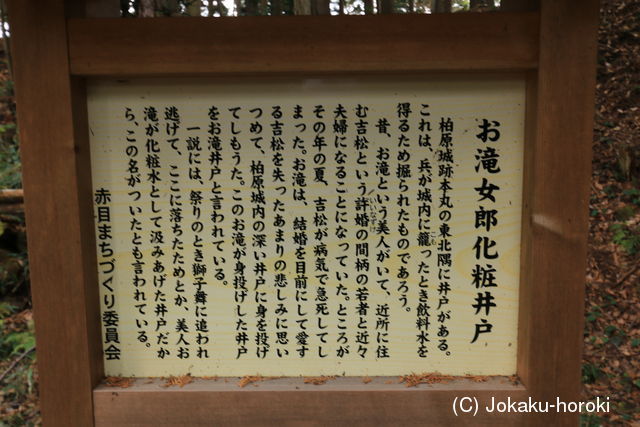 お滝女郎化粧井戸
柏原城跡本丸の東北隅に井戸がある。
これは、兵が城内に籠ったとき飲料水を
得るため掘られたものであろう。
昔、お滝という美人がいて、近所に住
む吉松という許婚の間柄の若者と近々
いいなずけ
夫婦になることになっていた。ところが
その年の夏、吉松が病気で急死してし
まった。お滝は、結婚を目前にして愛す
る吉松を失ったあまりの悲しみに思い
つめて、柏原城内の深い井戸に身を投げ
てしもうた。このお滝が身投げした井戸
をお滝井戸と言われている。
一説には、祭りのとき獅子舞に追われ
逃げて、ここに落ちたためとか、美人お
滝が化粧水として汲みあげた井戸だか
ら、この名がついたとも言われている。
赤目まちづくり委員会
(C) Jokaku-horoki